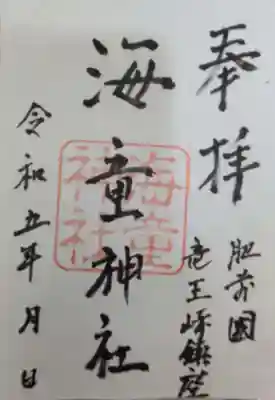 奉拝
肥前國
竜王崎鎮座
海童神社
海童神社
令和五年月日